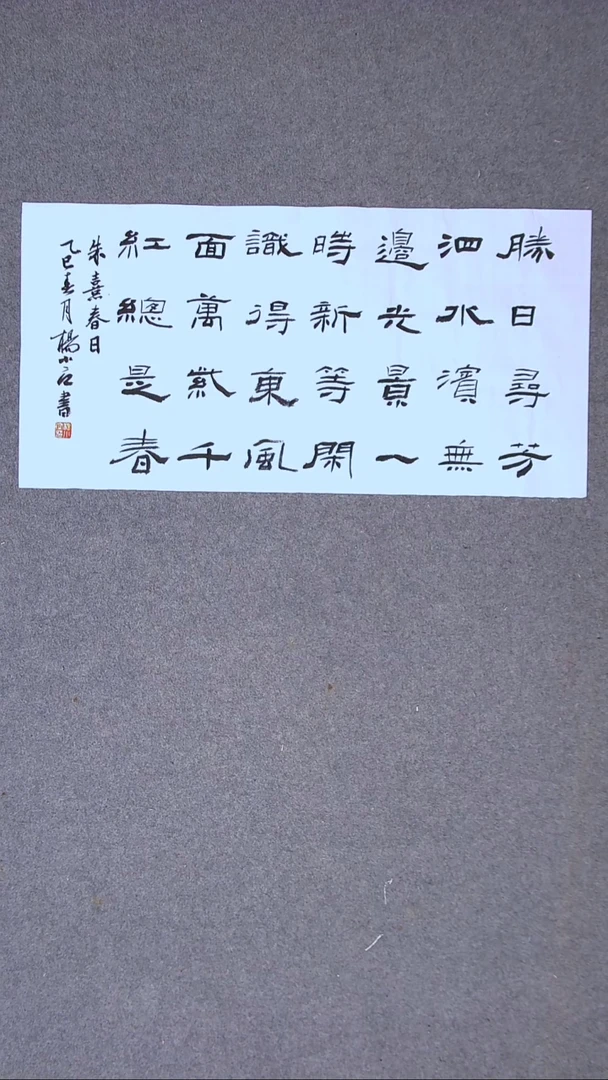 勝日尋芳
泗水濱無
邊光景一
時新等閑
識得東風
面萬紫千
紅總是春
朱熹春日
乙巳春月楊小 書